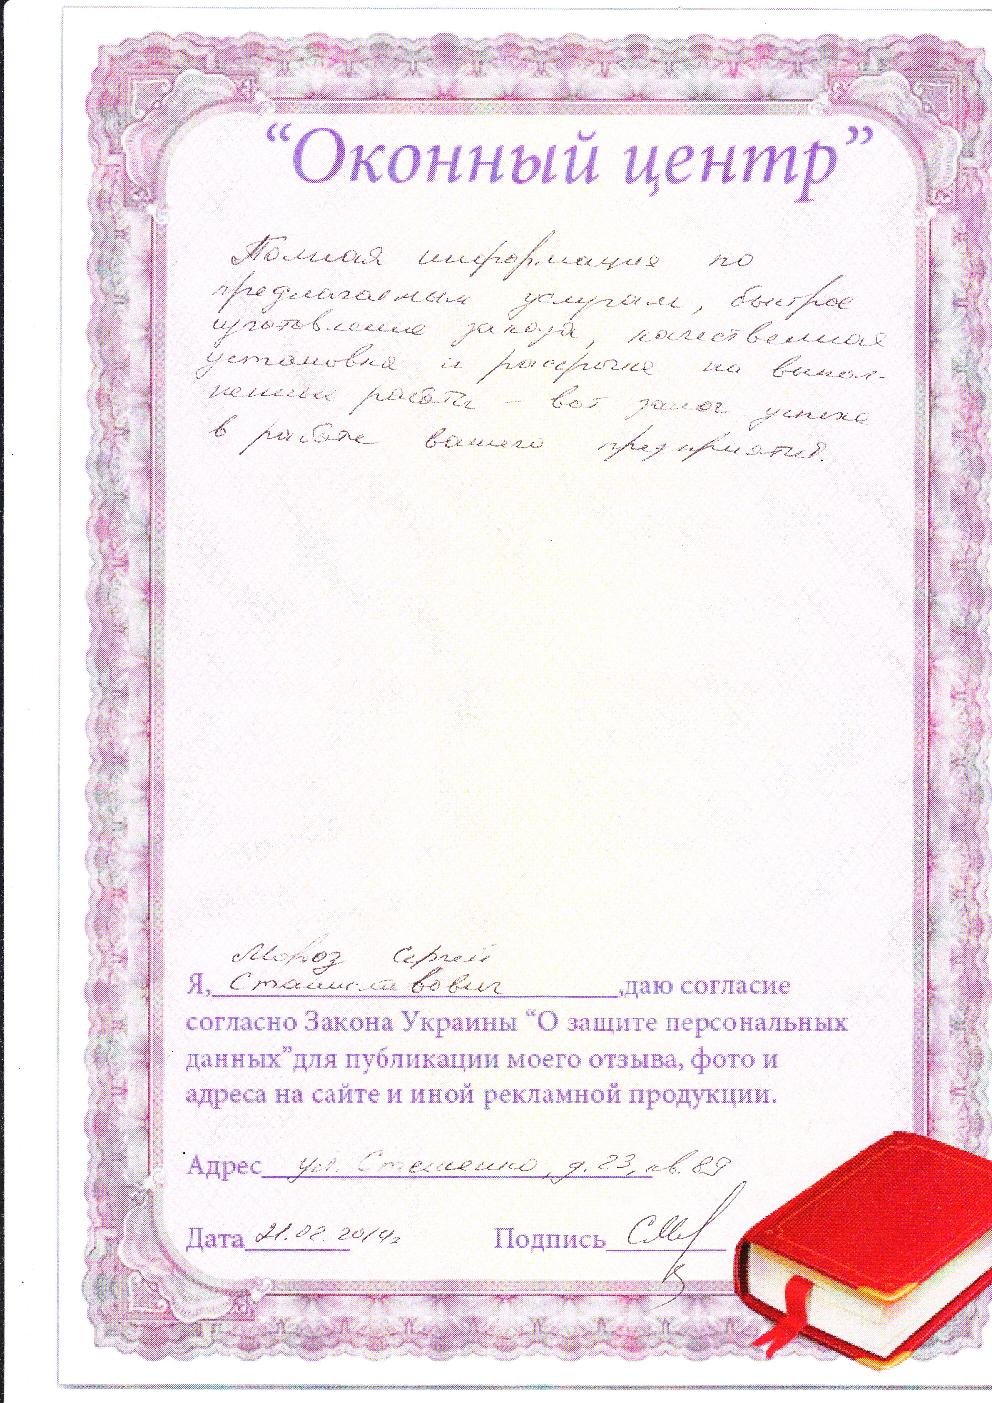 “Оконный центр”
Полная информация по
предлагаемым услугам, быстрое
изготовление заказа, качественная
установка и рассрочка на выпол-
ненные работы – вот залог успеха
в работе вашего предприятия.
Мороз Сергей
Я, Станиславович ,даю согласие
согласно Закона Украины “О защите персональных
данных”для публикации моего отзыва, фото и
адреса на сайте и иной рекламной продукции.
Адрес ул. Стешенко, д.23, кв. 89
Дата 21.02.2014г Подпись